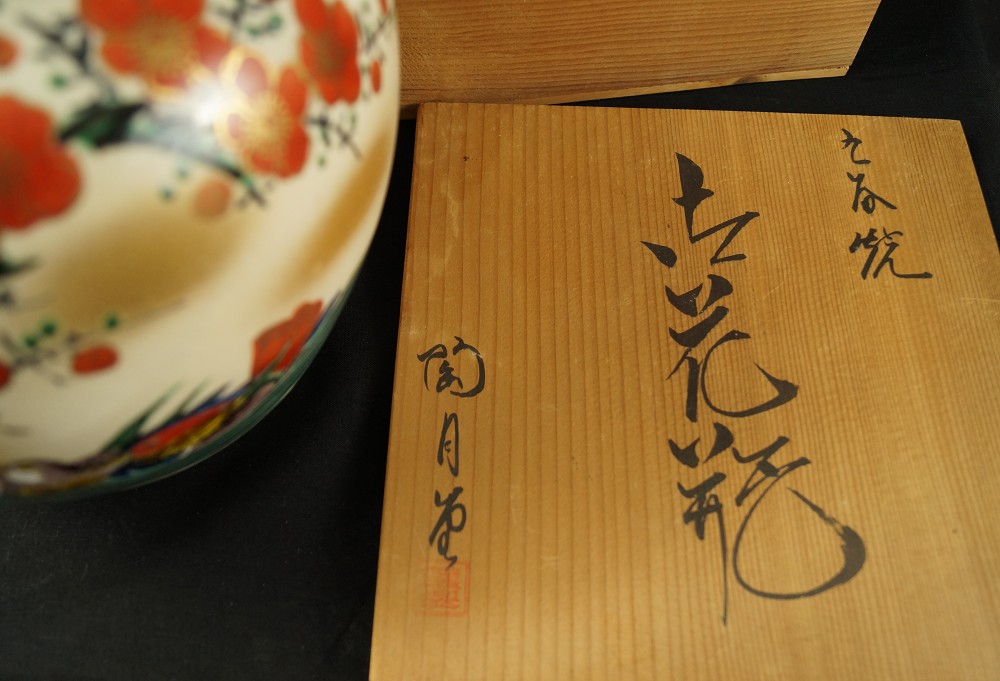 九谷焼
古花瓶
陶月堂